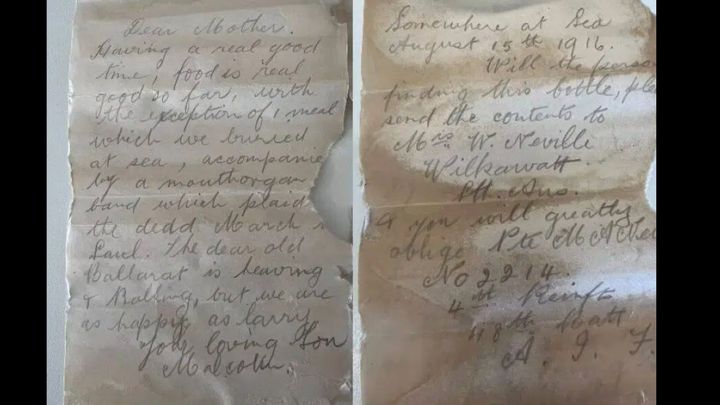 Dear Mother.
Having a real good
time, food is real
good so far, with
the exception of 1 meal
which we burried
at sea, accompanie
by a mouthorgan
band which plaid
the dedd March
Saul. The dear old
Ballarat is heaving
& Rolling, but we are
as happy as larry
Your loving Son
Malcolm.
Somewhere at Sea
August 15th 1916.
Will the perso
finding this bottle, ple
send the contents to
Mrs W. Neville
Wilkawatt
Sth. Aus.
& you will greatly
oblige Pte M A Ne
No 2214.
4th Reinft
48th Batt
A. I. F.